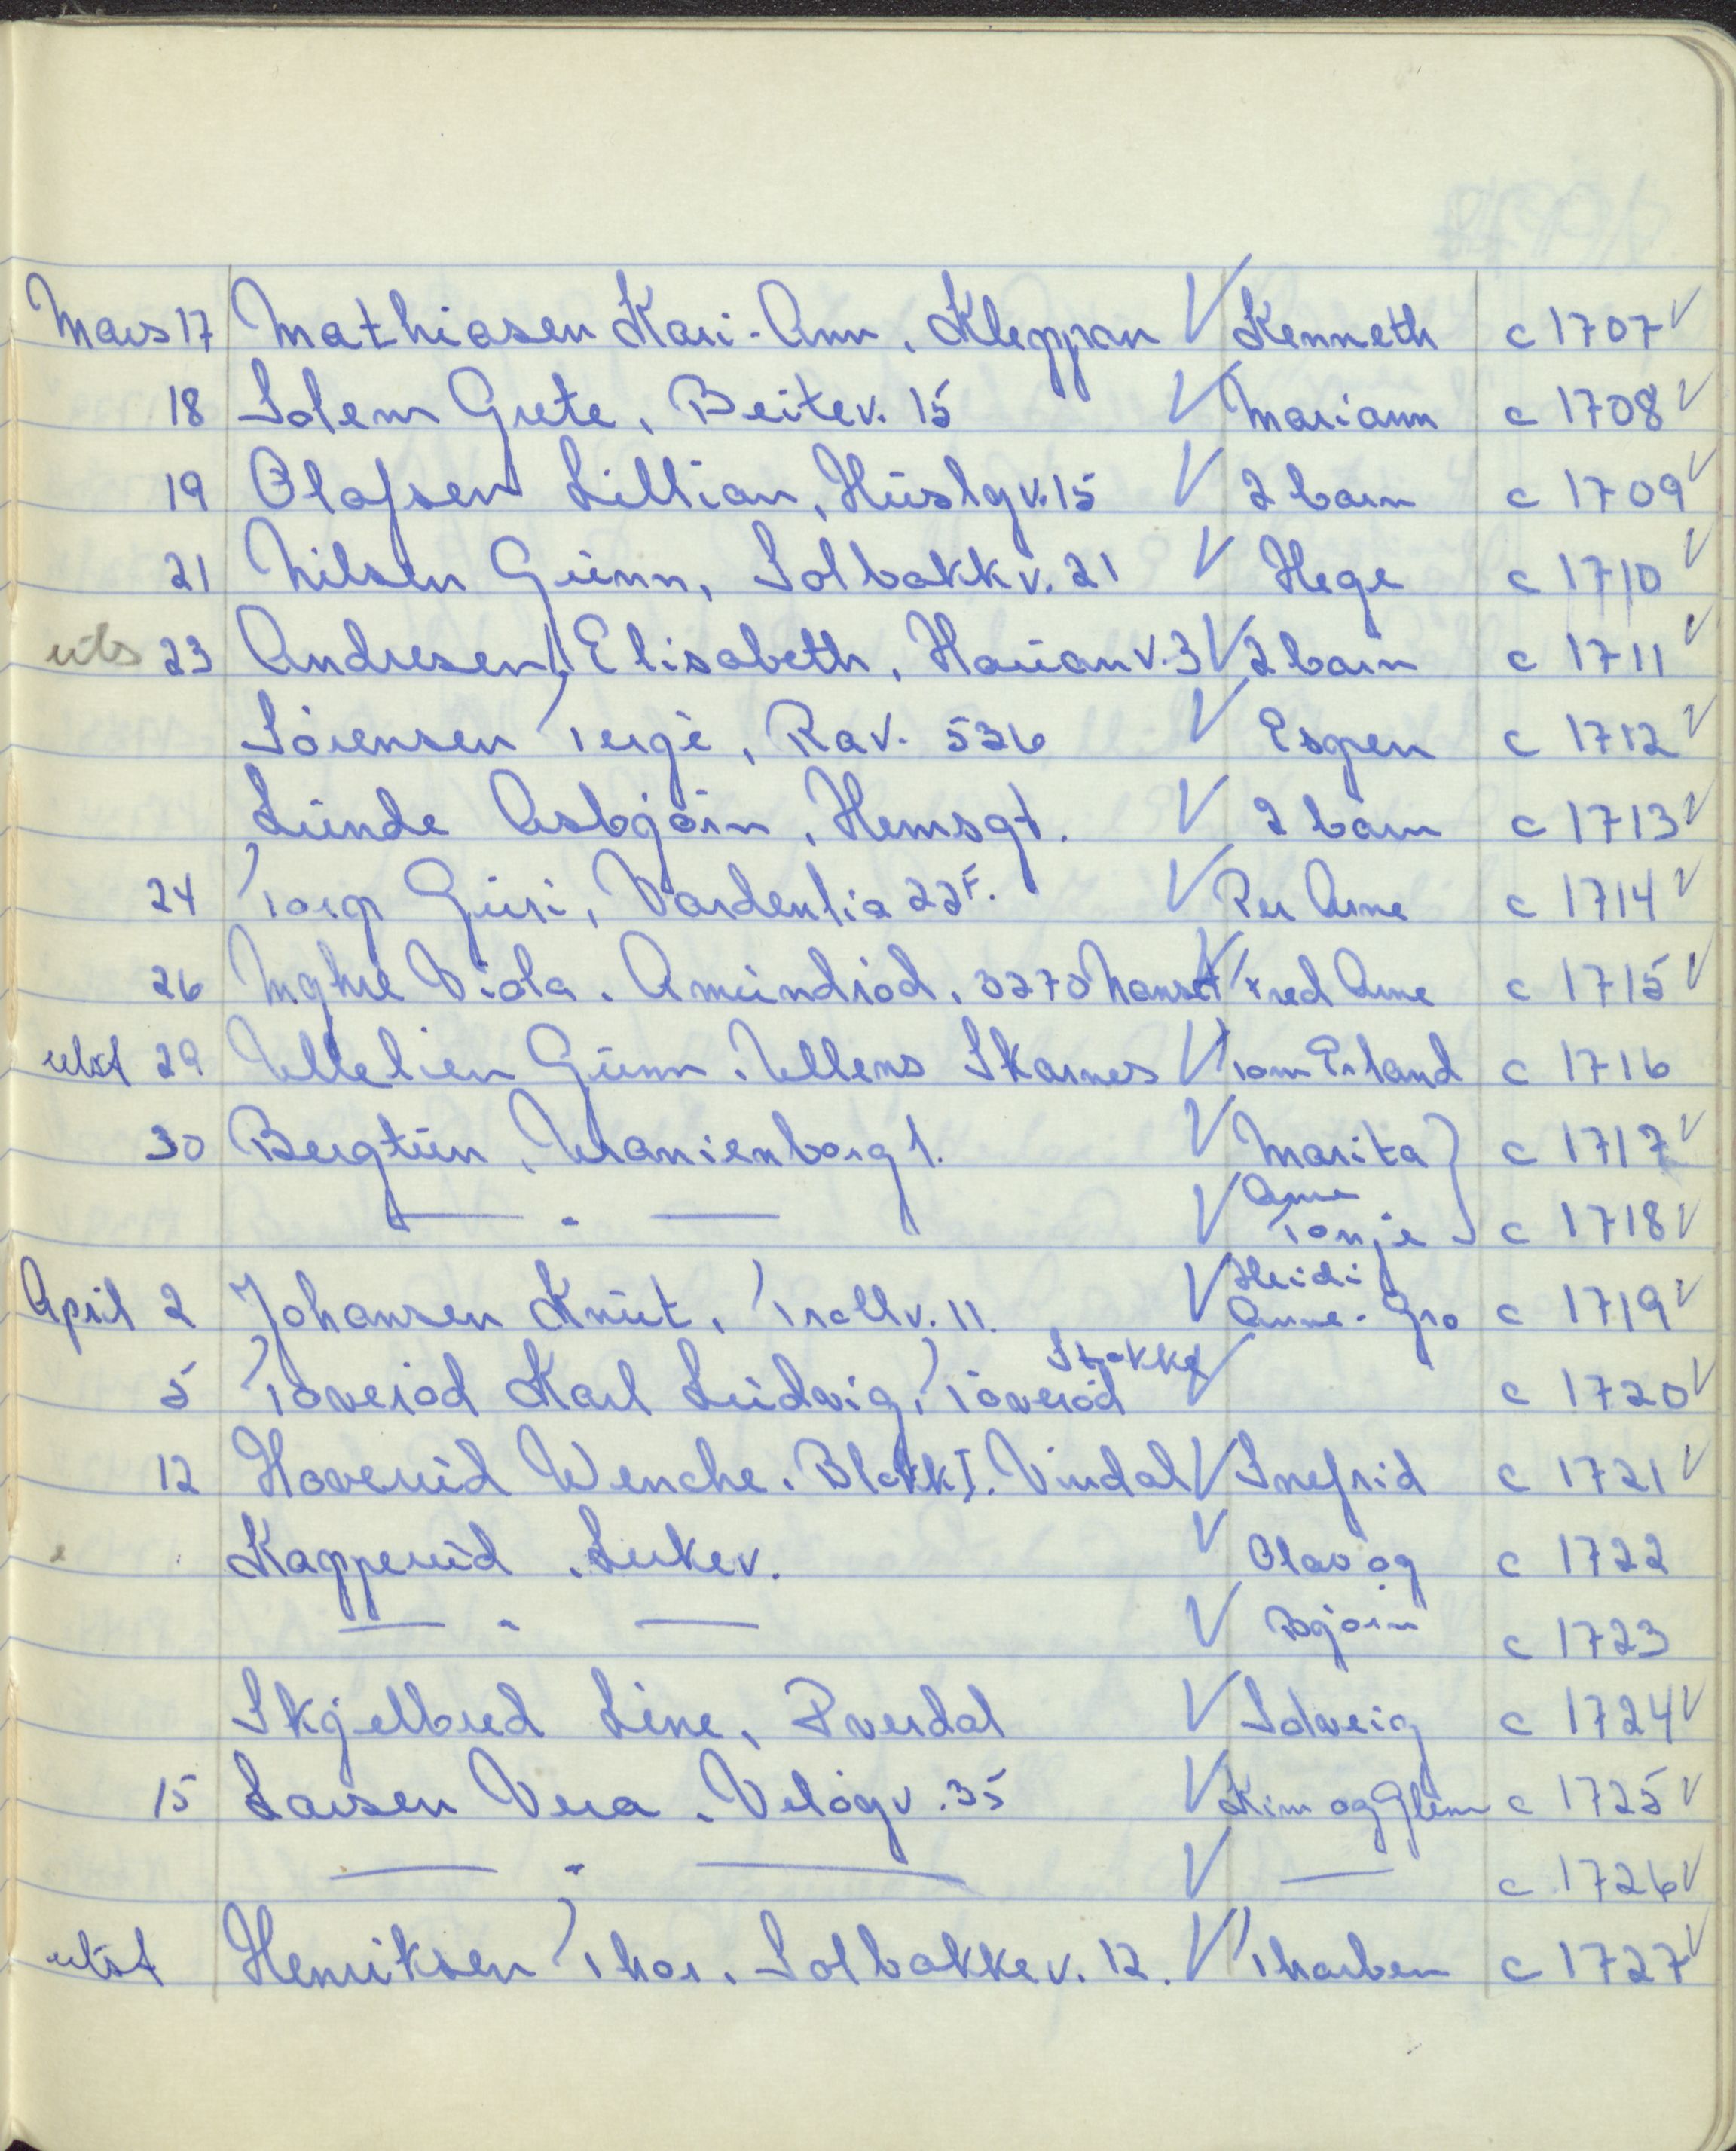 Mars 17 Mathiasen Kari-Ann, Kleppan √ Kenneth c 1707 √
18 Solem Grete, Beitev. 15 √ Mariann c 1708 √
19 Olafsen Lillian, Huslgv. 15 √ 2 barn c 1709 √
21 Nilsen Gunn, Solbakkv. 21 √ Hege c 1710 √
uts 23 Andresen Elisabeth, Haÿanv. 3 √ 2 barn c 1711 √
Sörensen Terje, Rav. 526 √ Espen c 1712 √
Lunde Asbjörn, Hemsgt. √ 2 barn c 1713 √
24 Torp Guri, Vardenlia 22F. √ Per Arne c 1714 √
26 Myhre Viola. Amundröd. 3270 √ Fred Arne c 1715 √
utst 29 Ullelien Gunn. Ullens Skarnes √ Tom Erland c 1716
30 Bergtun, Uranienborg 1. √ Marita } c 1717 √
— " — √ Anne Tonje c 1718 √
April 2 Johansen Knut, Trollv. 11. √ Heidi Anne-Gro c 1719 √
5 Töveröd Karl Ludvig, Töveröd Stokke √ c 1720 √
12 Haverud Wenche. Blokk I. Vindal √ Snefrid c 1721 √
Kapperud, Lerkev. √ Olav og c 1722
— " — √ Bjørn c 1723
Skjelbred Line, Tverdal √ Solveig c 1724 √
15 Larsen Vera. Velögv. 35 √ Kim og Glenn c 1725 √
— " — √ — c 1726 √
utst Henriksen Thor. Solbakkev. 12. √ Thorben c 1727 √